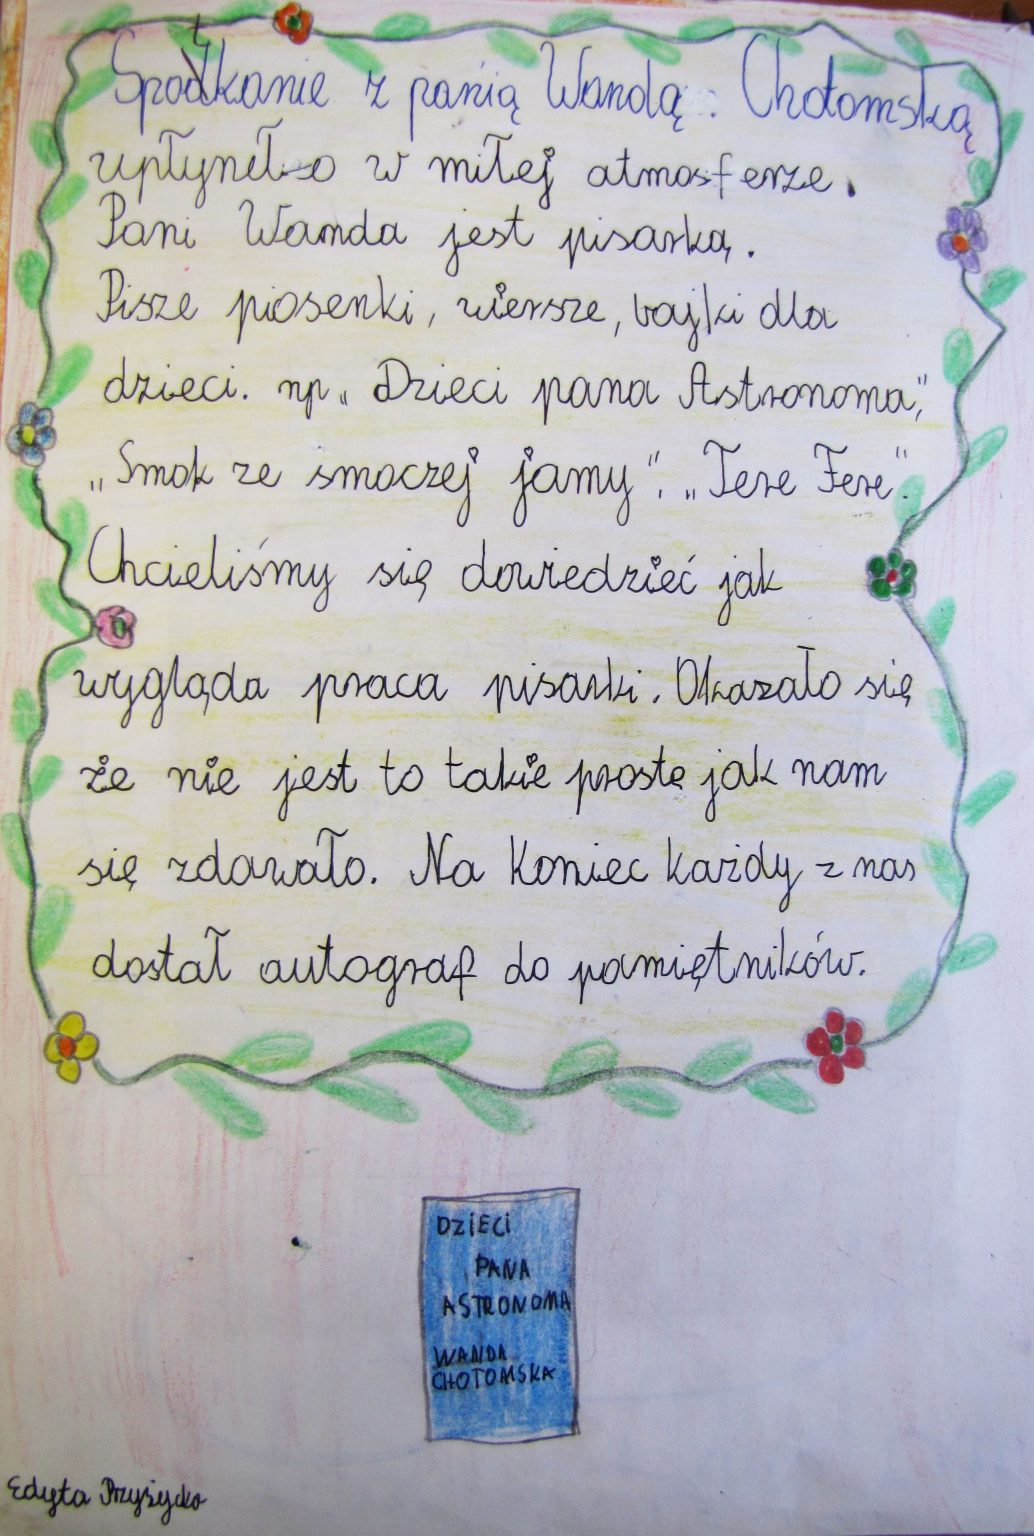 Spotkanie z panią Wandą Chotomską
upłyneło w miłej atmosferze.
Pani Wanda jest pisarką.
Pisze piosenki, wiersze, bajki dla
dzieci. np „Dzieci pana Astronoma",
„Smok ze smoczej jamy". „Tere Fere".
Chcieliśmy się dowiedzieć jak
wygląda praca pisarki. Okazało się
że nie jest to takie proste jak nam
się zdawało. Na koniec każdy z nas
dostał autograf do pamiętników.
DZIECI
PANA
ASTRONOMA
WANDA
CHOTOMSKA
Edyta